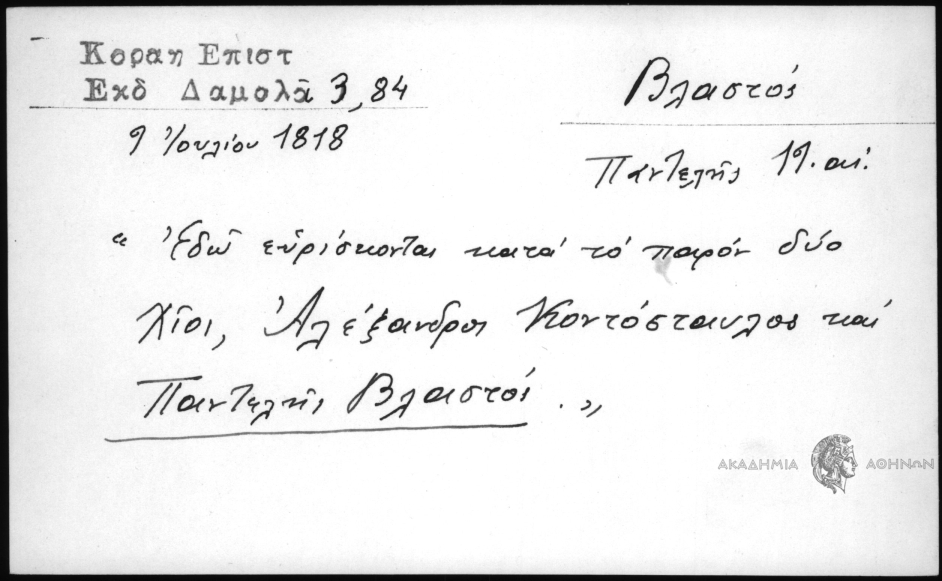 Κοραη Επιστ
Εκδ Δαμαλᾶ 3,84
9 Ἰουλίου 1818
Βλαστός
Παντελῆς
"Ἐδῶ εὑρίσκονται κατά τό παρόν δύο
Χῖοι, Ἀλέξανδρος Κοντόσταυλος καί
Παντελῆς Βλαστός."
ΑΚΑΔΗΜΙΑ ΑΘΗΝΩΝ